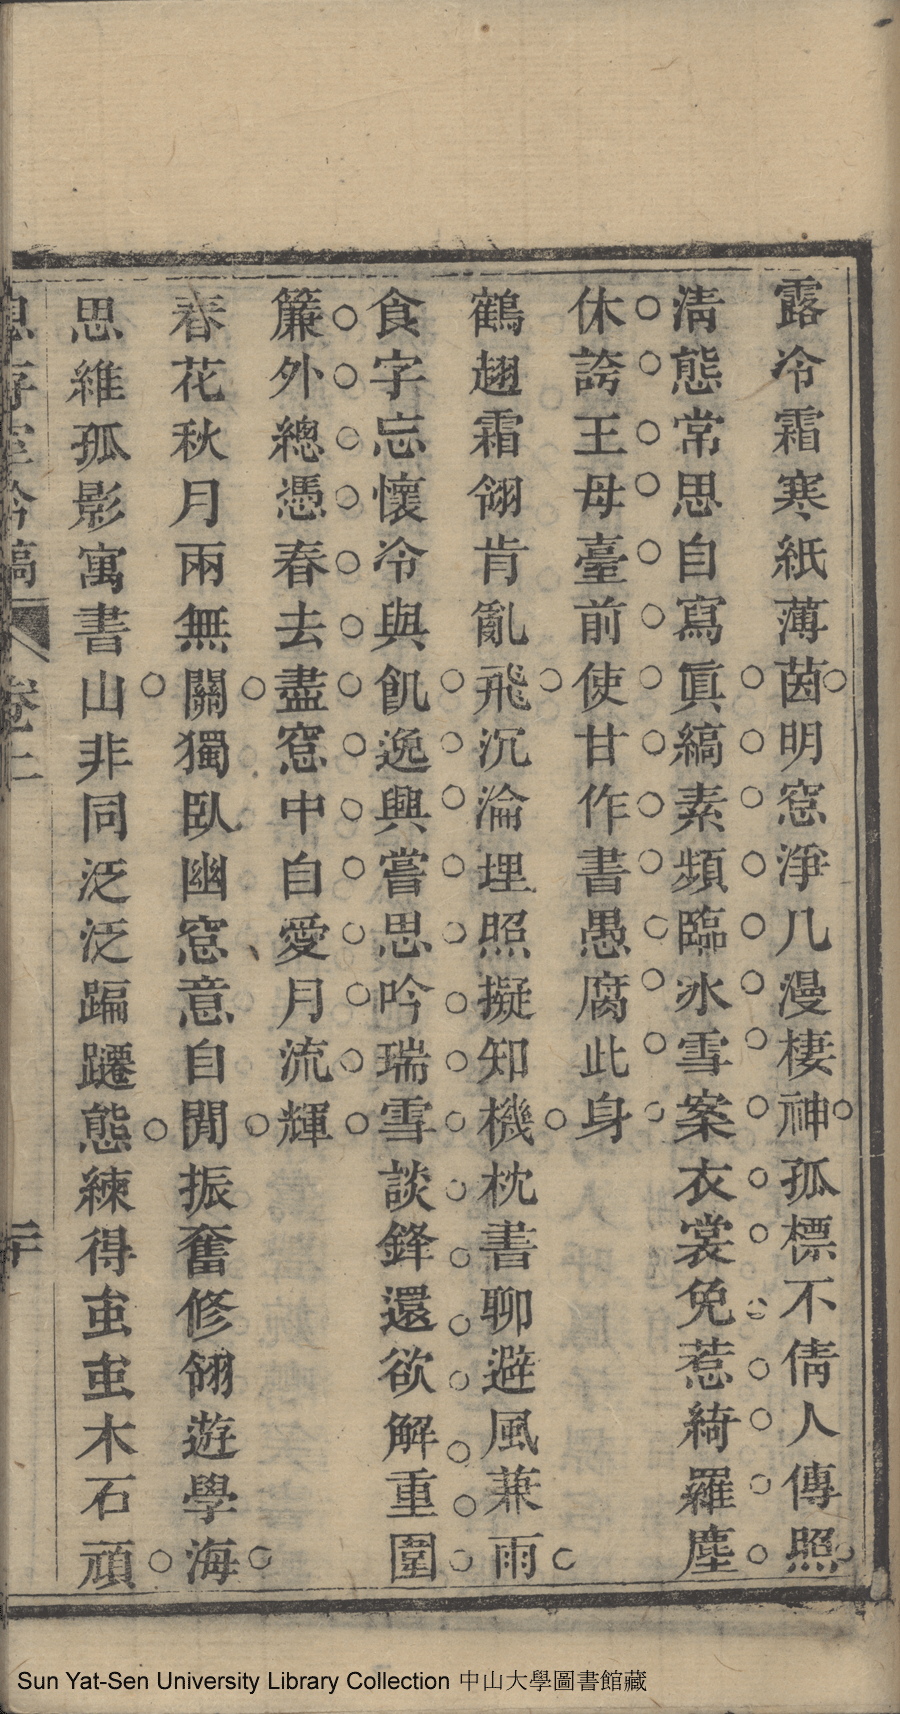 露冷霜寒紙薄茵明窓淨几漫棲神孤標不倩人傳照
淸態常思自寫眞縞素頻臨氷雪案衣裳免惹綺羅塵
休誇王母臺前使甘作書愚腐此身
鶴翅霜翎肯亂飛沉淪埋照擬知機枕書聊避風兼雨
食字忘懷冷與飢逸興嘗思吟瑞雪談鋒還欲解重圍
簾外總憑春去盡窓中自愛月流輝
春花秋月兩無關獨臥幽窓意自閒振奮修翎遊學海
思維孤影寓書山非同泛泛蹁躚態練得䖝䖝木石頑
思存室吟稿 卷上 二十
Sun Yat-Sen University Library Collection 中山大學圖書館藏